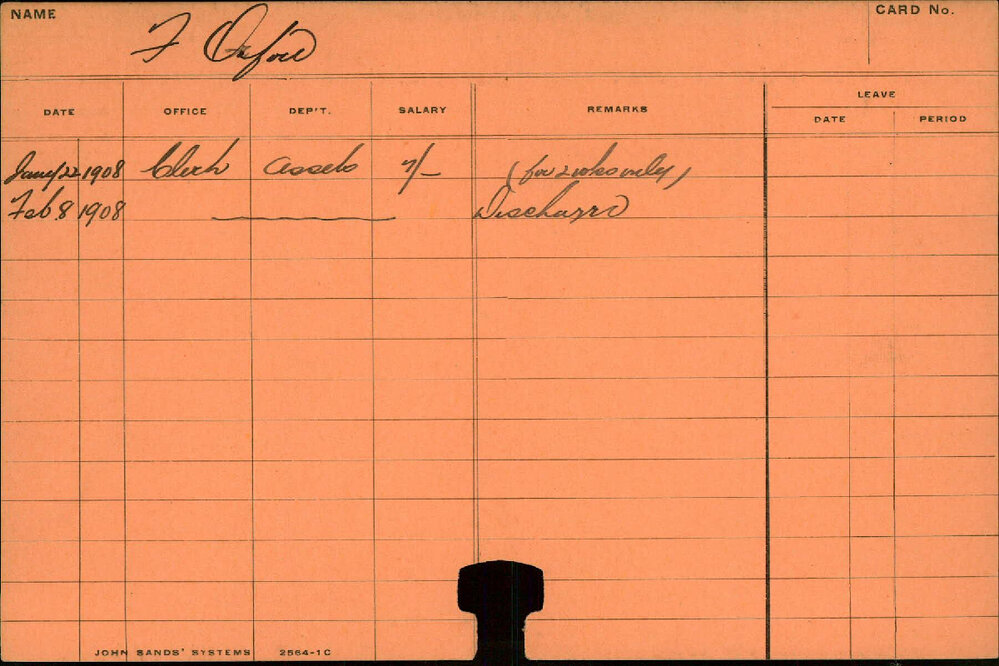 NAME F Oxford CARD No.
DATE OFFICE DEP'T. SALARY REMARKS LEAVE
DATE PERIOD
Jany 22 1908 Clerk Assets 7/- (for 2 weeks only)
Feb 8 1908 Discharged
JOHN SANDS' SYSTEMS 2564-1C